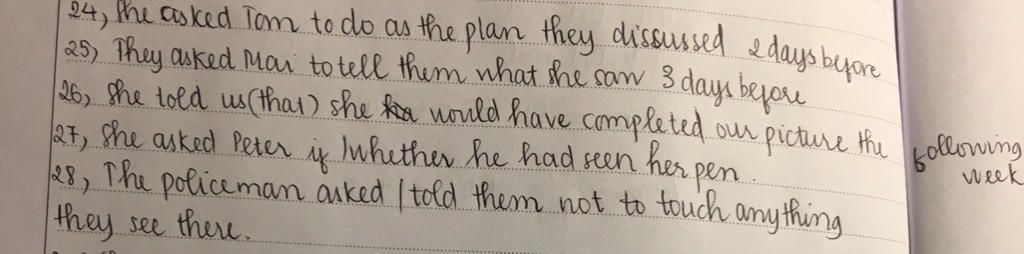 24, She asked Tom to do as the plan they dissussed 2 days before
25, They asked Mai to tell them what she saw 3 days before
26, She told us (that) she would have completed our picture the following week
27, She asked Peter if / whether he had seen her pen.
28, The policeman asked / told them not to touch anything
they see there.